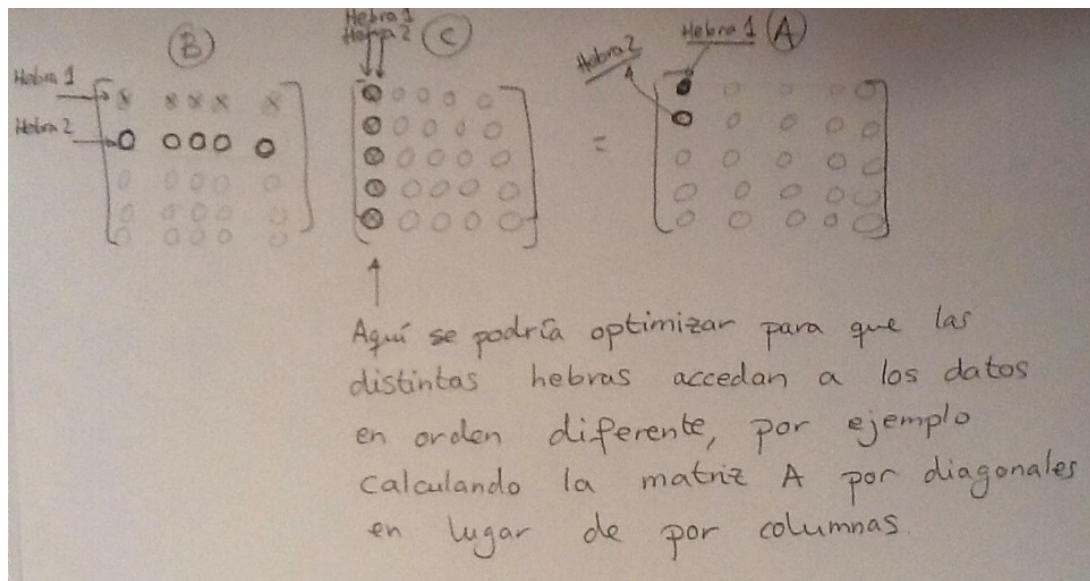 Hebra 1
Hebra 2
B
Hebra 1
Hebra 2
C
=
Hebra 2
Hebra 1
A
Aquí se podría optimizar para que las
distintas hebras accedan a los datos
en orden diferente, por ejemplo
calculando la matriz A por diagonales
en lugar de por columnas.